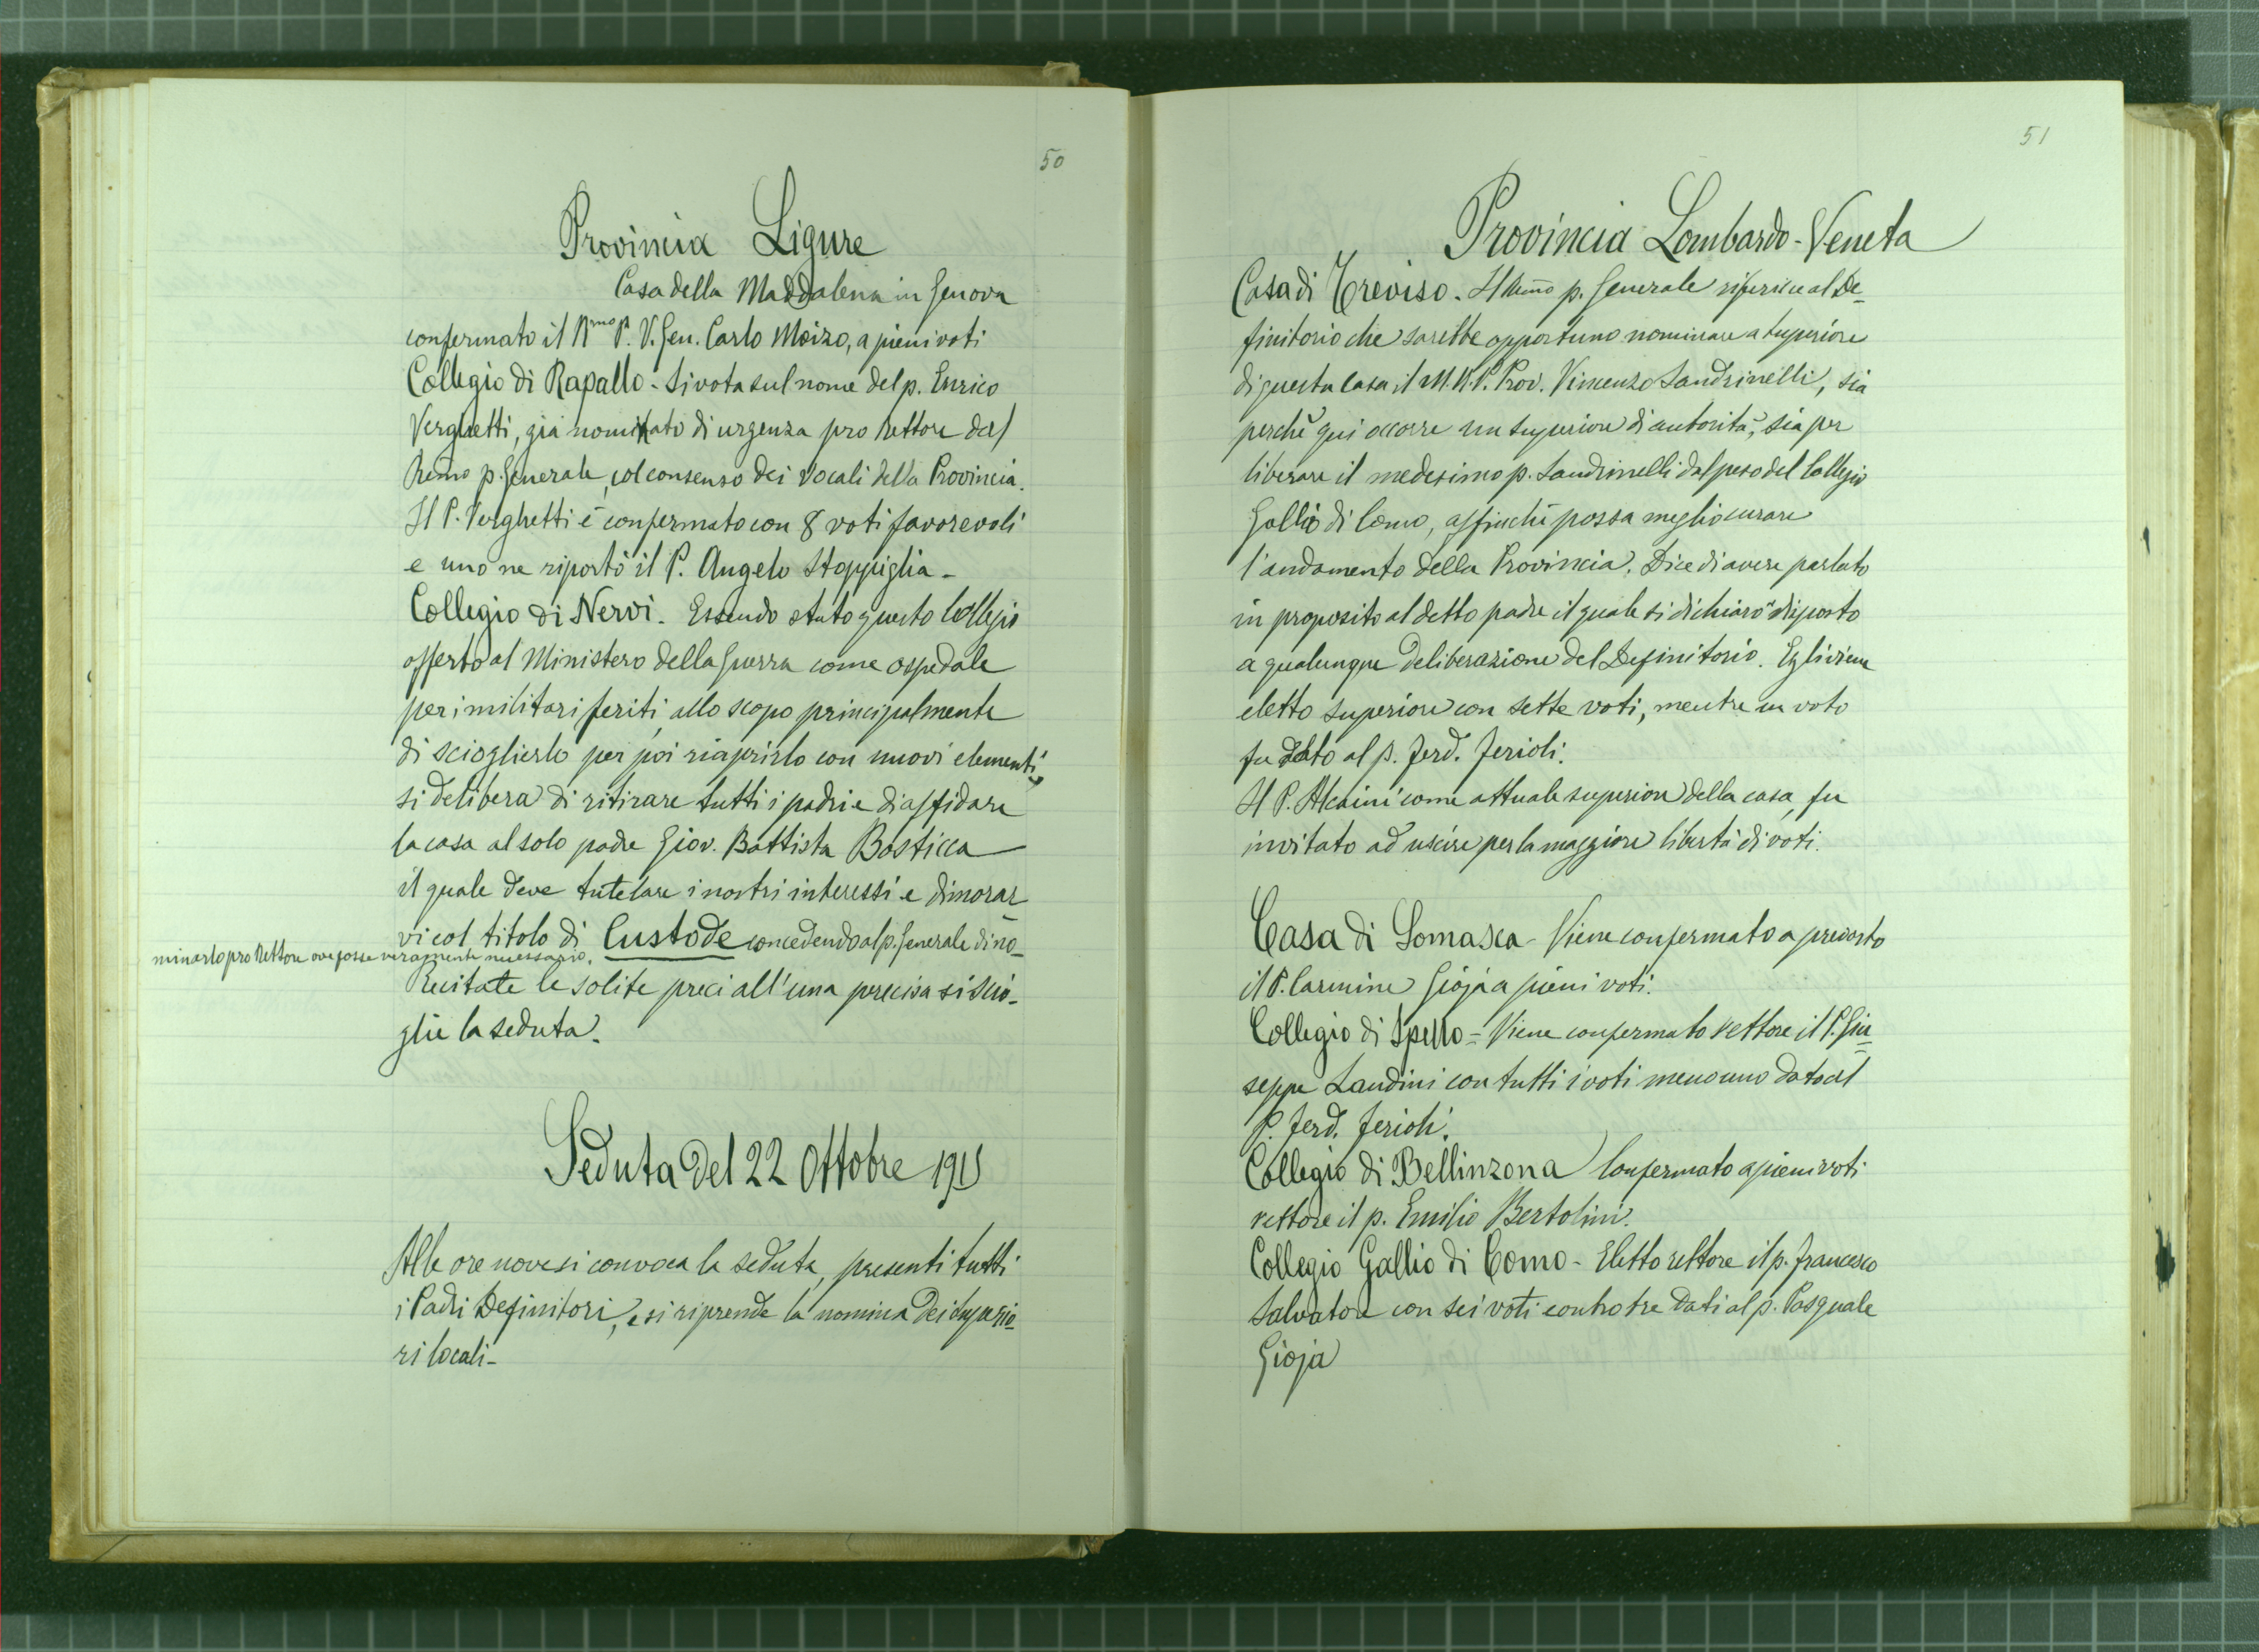 50
Provincia Ligure
Casa della Maddalena in Genova
confermato il Rmo P. V. Gen. Carlo Moizo, a pieni voti
Collegio di Rapallo - Si vota sul nome del p. Enrico
Verghetti, già nominato di urgenza pro Rettore dal
Remo p. Generale, col consenso dei Vocali della Provincia.
Il P. Verghetti è confermato con 8 voti favorevoli
e uno ne riportò il P. Angelo Stoppiglia -
Collegio di Nervi. Essendo stato questo Collegio
offerto al Ministero della Guerra come ospedale
per i militari feriti, allo scopo principalmente
di scioglierlo per poi riaprirlo con nuovi elementi,
si delibera di ritirare tutti i padri e di affidare
la casa al solo padre Giov. Battista Bosticca
il quale deve tutelare i nostri interessi e dimorar
vi col titolo di Custode concedendo al p. Generale di no-
minarlo pro Rettore ove fosse veramente necessario.
Recitate le solite preci all'una precisa si scio-
glie la seduta.
Seduta del 22 Ottobre 1915
Alle ore nove si convoca la seduta, presenti tutti
i Padri Definitori, e si riprende la nomina dei Superio-
ri locali -
51
Provincia Lombardo-Veneta
Casa di Treviso. Il Remo p. Generale riferisce al De-
finitorio che sarebbe opportuno nominare a Superiore
di questa Casa il M. R. P. Prov. Vincenzo Sandrinelli, sia
perchè qui occorre un Superiore di autorità, sia per
liberare il medesimo p. Sandrinelli dal peso del Collegio
Gallio di Como, affinchè possa meglio curare
l'andamento della Provincia. Dice di avere parlato
in proposito al detto padre il quale si dichiarò disposto
a qualunque deliberazione del Definitorio. Egli viene
eletto Superiore con sette voti, mentre un voto
fu dato al p. Ferd. Ferioli.
Il P. Alcaini come attuale superiore della casa, fu
invitato ad uscire per la maggiore libertà di voti.
Casa di Somasca - Viene confermato a preposto
il P. Carmine Gioja a pieni voti.
Collegio di Spello = Viene confermato rettore il P. Giu=
seppe Landini con tutti i voti meno uno dato al
P. Ferd. Ferioli.
Collegio di Bellinzona Confermato a pieni voti
rettore il p. Emilio Bertolini.
Collegio Gallio di Como - Eletto rettore il p. Francesco
Salvatore con sei voti contro tre dati al p. Pasquale
Gioja